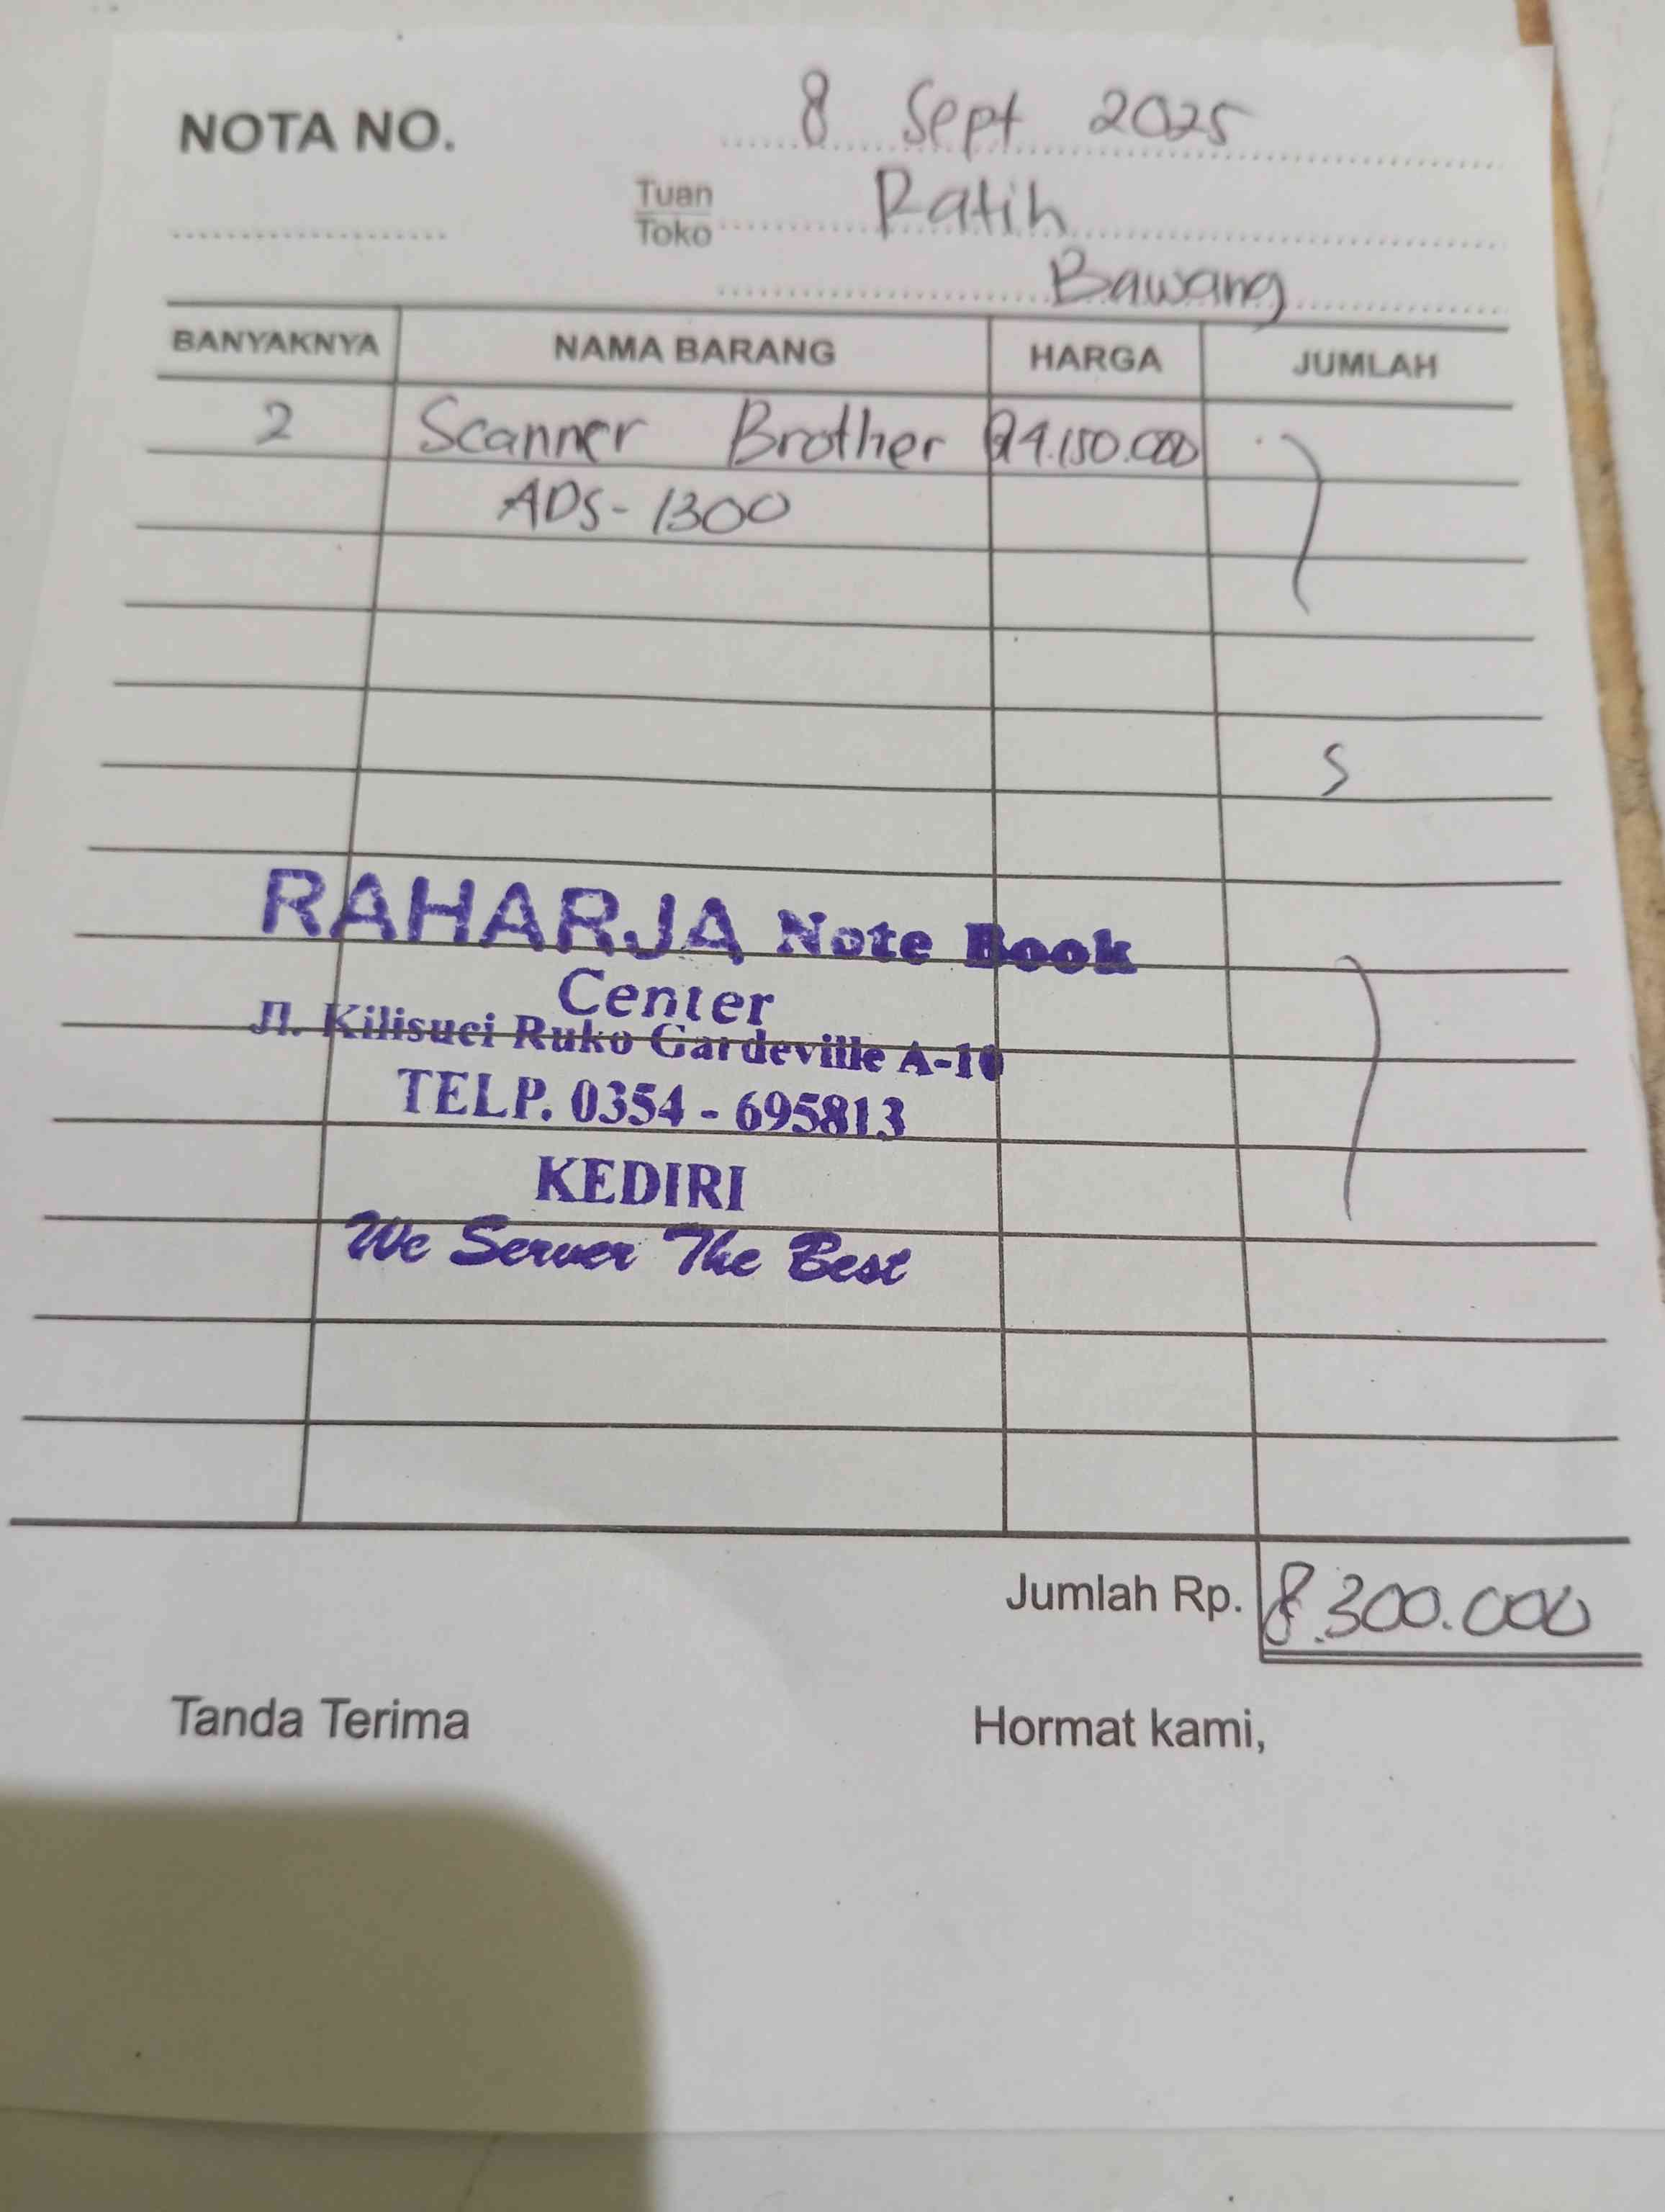 NOTA NO.
8 Sept 2025
Tuan
Toko
Ratih
Bawang
BANYAKNYA NAMA BARANG HARGA JUMLAH
2 Scanner Brother @4.150.000
ADS-1300
RAHARJA Note Book
Center
Jl. Kilisuci Ruko Gardeville A-10
TELP. 0354 - 695813
KEDIRI
We Server The Best
Jumlah Rp. 8.300.000
Tanda Terima Hormat kami,